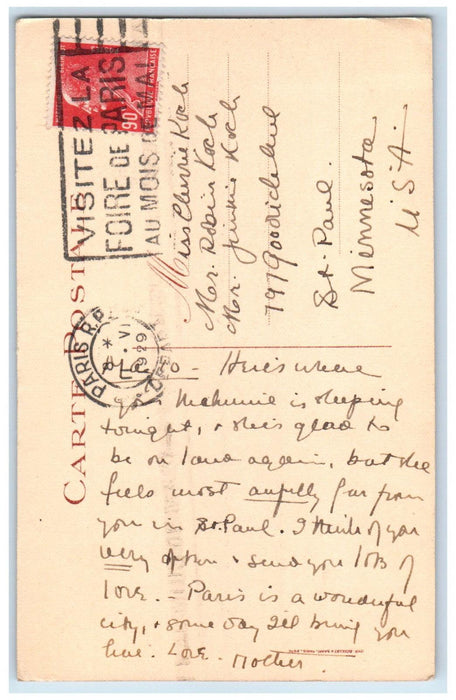 VISITEZ LA
FOIRE DE PARIS
AU MOIS DE MAI
90c
CARTE POSTALE
PARIS R.P.
VI
1929
Miss Cherrie Koch
Mr. Robin Koch
Mr. Jimmie Koch
797 Goodrich Ave
St. Paul
Minnesota
U.S.A.
Here's where
your is sleeping
tonight, + she's glad to
be on land again, but she
feels most awfully far from
you in St. Paul. I think of you
very often + send you lots of
love. - Paris is a wonderful
city, + some day I'll bring you
here. Love. Mother